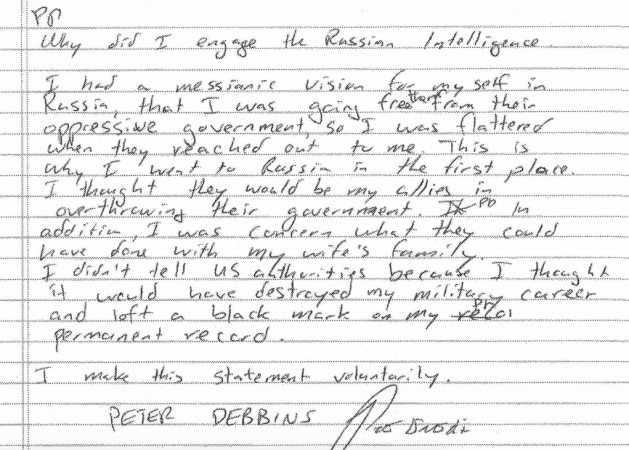 PD
Why did I engage the Russian Intelligence.
I had a messianic vision for myself in
Russia, that I was going free them from their
oppressive government, so I was flattered
when they reached out to me. This is
why I went to Russia in the first place.
I thought they would be my allies in
overthrowing their government. It PD In
addition, I was concern what they could
have done with my wife's family.
I didn't tell US authorities because I thought
it would have destroyed my military career
and left a black mark on my PD
permanent record.
I make this statement voluntarily.
PETER DEBBINS